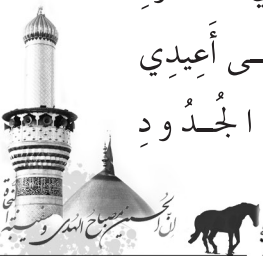 ـى أَعِيدِي
الجُـدُودِ
إن الحسين مصباح الهدى وسفينة النجاة